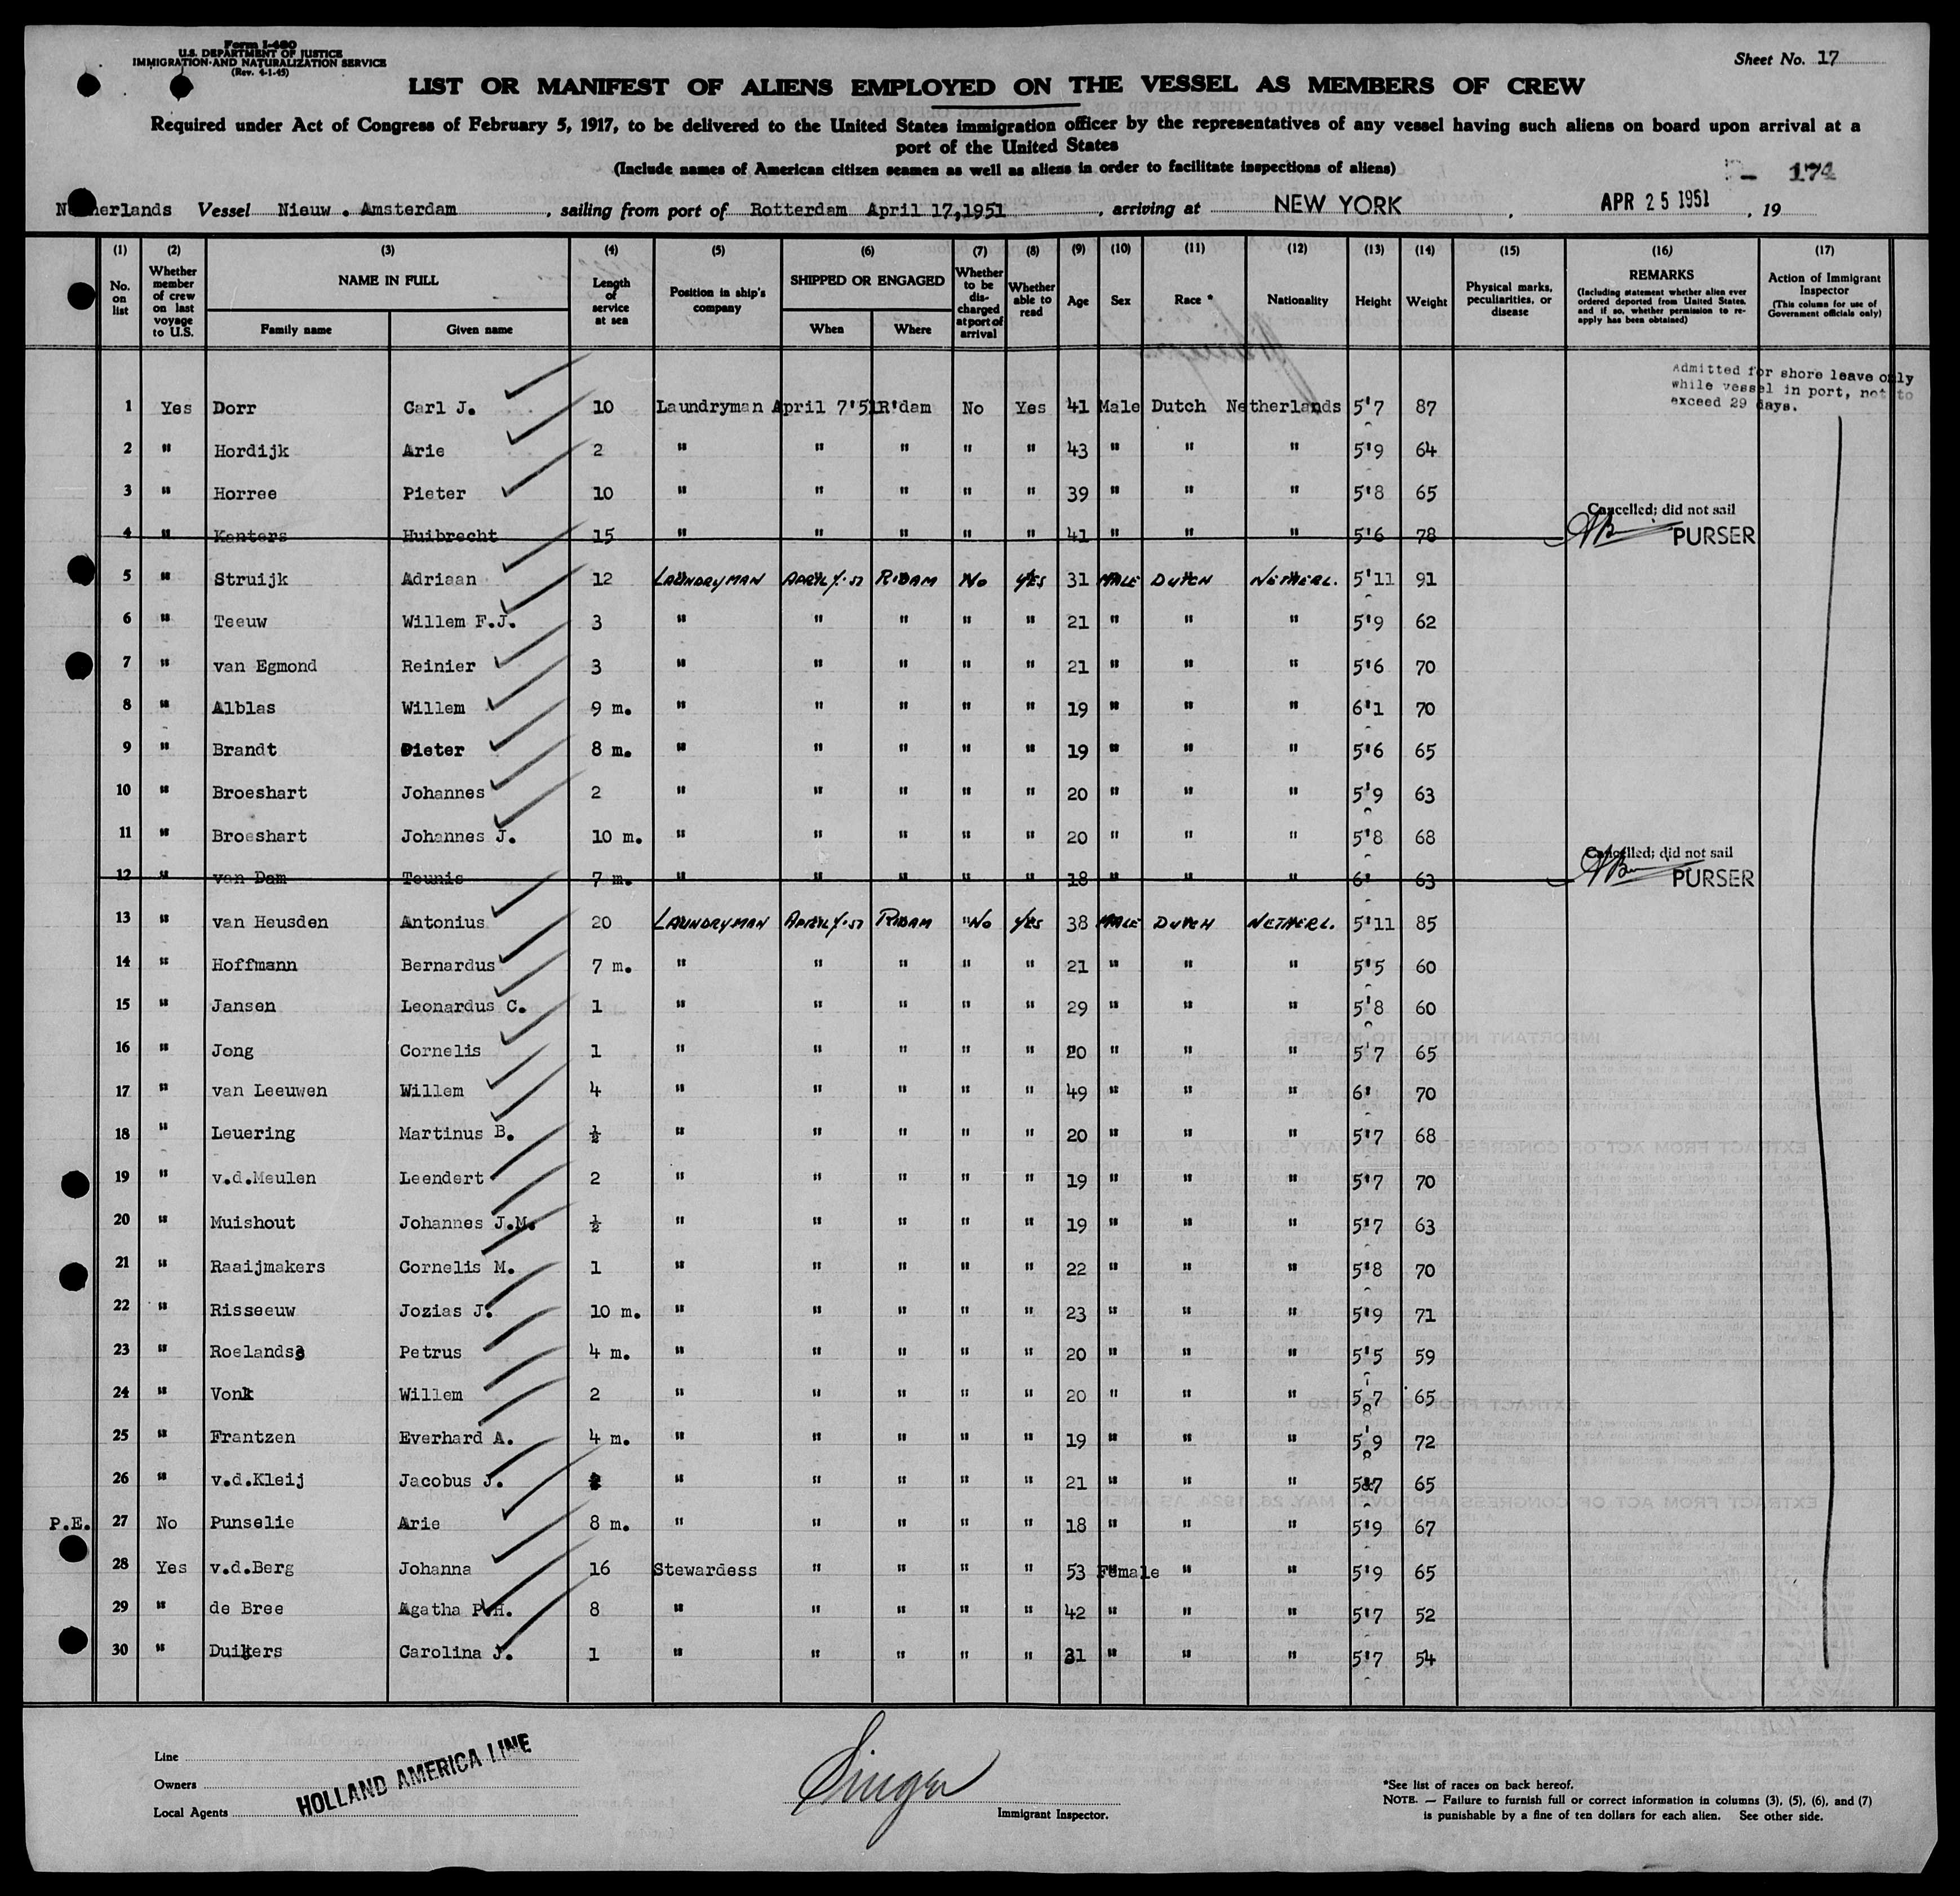 Form I-480
U.S. DEPARTMENT OF JUSTICE
IMMIGRATION AND NATURALIZATION SERVICE
(Rev. 4-1-45)
Sheet No. 17
LIST OR MANIFEST OF ALIENS EMPLOYED ON THE VESSEL AS MEMBERS OF CREW
Required under Act of Congress of February 5, 1917, to be delivered to the United States immigration officer by the representatives of any vessel having such aliens on board upon arrival at a
port of the United States
(Include names of American citizen seamen as well as aliens in order to facilitate inspections of aliens)
174
Netherlands Vessel Nieuw. Amsterdam, sailing from port of Rotterdam April 17,1951, arriving at NEW YORK, APR 25 1951, 19
(1) No. on list (2) Whether member of crew on last voyage to U.S. (3) NAME IN FULL Family name Given name (4) Length of service at sea (5) Position in ship's company (6) SHIPPED OR ENGAGED When Where (7) Whether to be discharged at port of arrival (8) Whether able to read (9) Age (10) Sex (11) Race * (12) Nationality (13) Height (14) Weight (15) Physical marks, peculiarities, or disease (16) REMARKS (Including statement whether alien ever ordered deported from United States, and if so, whether permission to re-apply has been obtained) (17) Action of Immigrant Inspector (This column for use of Government officials only)
Admitted for shore leave only
while vessel in port, not to
exceed 29 days.
1 Yes Dorr Carl J. 10 Laundryman April 7'51 R'dam No Yes 41 Male Dutch Netherlands 5'7 87
2 " Hordijk Arie 2 " " " " " 43 " " " 5'9 64
3 " Horree Pieter 10 " " " " " 39 " " " 5'8 65
Cancelled; did not sail
4 " Kanters Huibrecht 15 " " " " " 41 " " " 5'6 78 PURSER
5 " Struijk Adriaan 12 LAUNDRYMAN APRIL 7'51 R'DAM No YES 31 MALE DUTCH NETHERL. 5'11 91
6 " Teeuw Willem F.J. 3 " " " " " 21 " " " 5'9 62
7 " van Egmond Reinier 3 " " " " " 21 " " " 5'6 70
8 " Alblas Willem 9 m. " " " " " 19 " " " 6'1 70
9 " Brandt Pieter 8 m. " " " " " 19 " " " 5'6 65
10 " Broeshart Johannes 2 " " " " " 20 " " " 5'9 63
11 " Broeshart Johannes J. 10 m. " " " " " 20 " " " 5'8 68
Cancelled; did not sail
12 " van Dam Teunis 7 m. " " " " " 18 " " " 6' 63 PURSER
13 " van Heusden Antonius 20 LAUNDRYMAN APRIL 7'51 R'DAM "No YES 38 MALE DUTCH NETHERL. 5'11 85
14 " Hoffmann Bernardus 7 m. " " " " " 21 " " " 5'5 60
15 " Jansen Leonardus C. 1 " " " " " 29 " " " 5'8 60
16 " Jong Cornelis 1 " " " " " 20 " " " 5'7 65
17 " van Leeuwen Willem 4 " " " " " 49 " " " 6' 70
18 " Leuering Martinus B. ½ " " " " " 20 " " " 5'7 68
19 " v.d.Meulen Leendert 2 " " " " " 19 " " " 5'7 70
20 " Muishout Johannes J.M. ½ " " " " " 19 " " " 5'7 63
21 " Raaijmakers Cornelis M. 1 " " " " " 22 " " " 5'8 70
22 " Risseeuw Jozias J. 10 m. " " " " " 23 " " " 5'9 71
23 " Roelands Petrus 4 m. " " " " " 20 " " " 5'5 59
24 " Vonk Willem 2 " " " " " 20 " " " 5'7 65
25 " Frantzen Everhard A. 4 m. " " " " " 19 " " " 5'9 72
26 " v.d.Kleij Jacobus J. " " " " " 21 " " " 5'7 65
P.E. 27 No Punselie Arie 8 m. " " " " " 18 " " " 5'9 67
28 Yes v.d.Berg Johanna 16 Stewardess " " " " 53 Female " " 5'9 65
29 " de Bree Agatha P.H. 8 " " " " " 42 " " " 5'7 52
30 " Duijkers Carolina J. 1 " " " " " 31 " " " 5'7 54
Line
Owners
Local Agents
HOLLAND AMERICA LINE
Singer
Immigrant Inspector.
*See list of races on back hereof.
NOTE. — Failure to furnish full or correct information in columns (3), (5), (6), and (7)
is punishable by a fine of ten dollars for each alien. See other side.